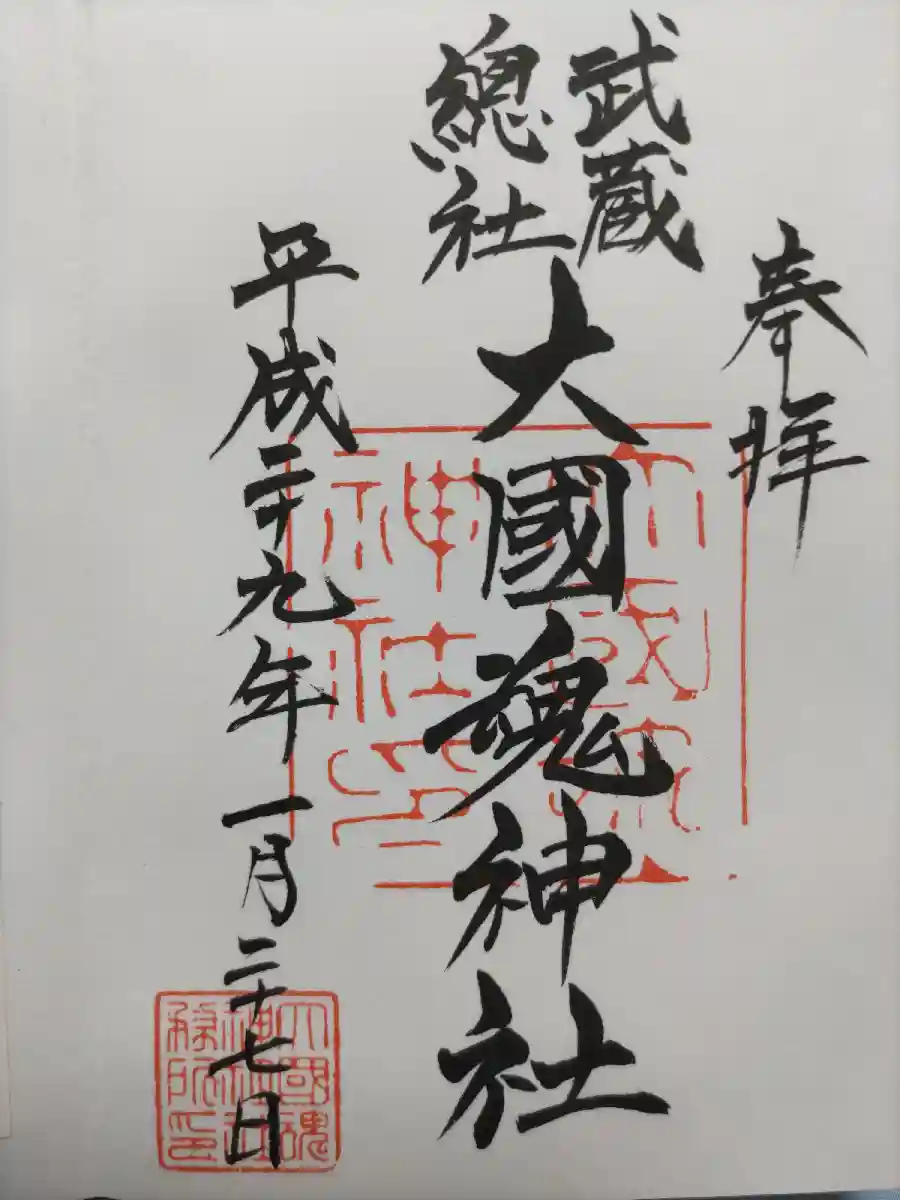 奉拝
武蔵
總社
大國魂神社
平成二十九年一月二十七日
大國魂
神社
印
大國魂
神社社
務所印